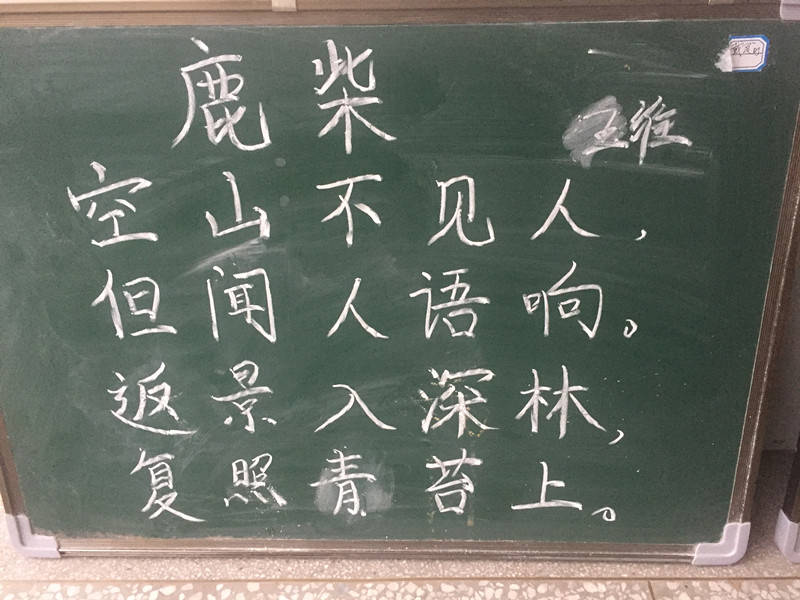 鹿柴
王维
空山不见人，
但闻人语响。
返景入深林，
复照青苔上。